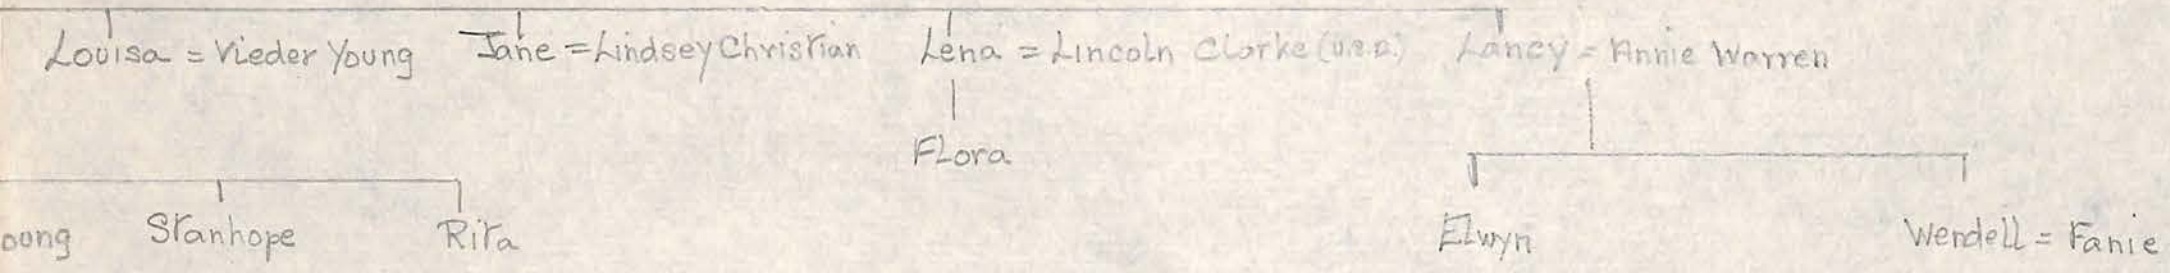 Louisa = Vieder Young Jane = Lindsey Christian Lena = Lincoln Clarke (U.S.A.) Lancy = Annie Warren
Flora
oung Stanhope Rita Elwyn Wendell = Fanie